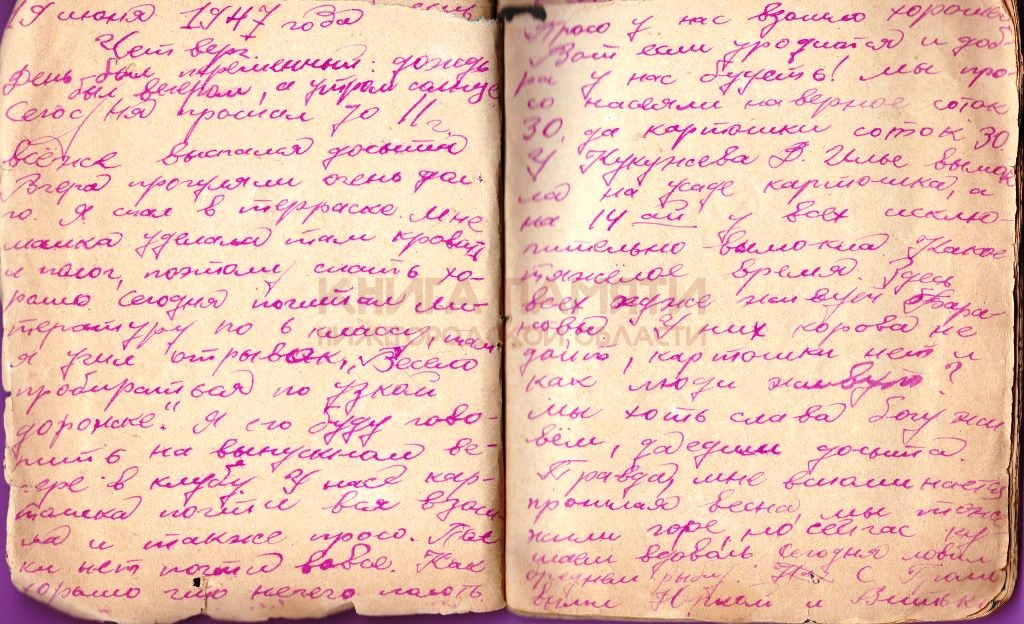 9 июня 1947 года
Четверг.
День был переменный: дождь
был вечером, а утром солнце
Сегодня проспал до 11 г.
всё же выспался досыта
Вчера прогуляли очень дол-
го. Я спал в терраске. Мне
мамка уделала там кровать
и полог, поэтому спать хо-
рошо Сегодня почитал ли-
тературу по 6 классу, там
я учил отрывок, „Весело
пробираться по узкой
дорожке". Я его буду гово-
рить на выпускном ве-
чере в клубу У нас кар-
тошка почти вся взош-
ла и также просо.
ки нет почти вовсе. Как
хорошо что нечего полоть
Просо у нас взошло хорошее
Вот если уродится и доб-
ра у нас будеть! Мы про-
со насеяли наверное соток
30, да картошки соток 30
У Кукужева Д. Ильи вымок
ла на усаде картошка, а
на 14 ай у всех исклю-
чительно вымокла. Какое
тяжёлое время. Здесь
всех хуже живут Бара
новы У них корова не
доит, картошки нет и
как люди живут?
Мы хоть слава богу жи
вём, да едим досыта.
Правда мне вспоминается
прошлая весна, мы тоже
жили горе, но сейчас ку
шаем вдоволь Сегодня ловил
бреднем рыбу. С
были Юркой и Витьк
КНИГА ПАМЯТИ
НИЖЕГОРОДСКОЙ ОБЛАСТИ